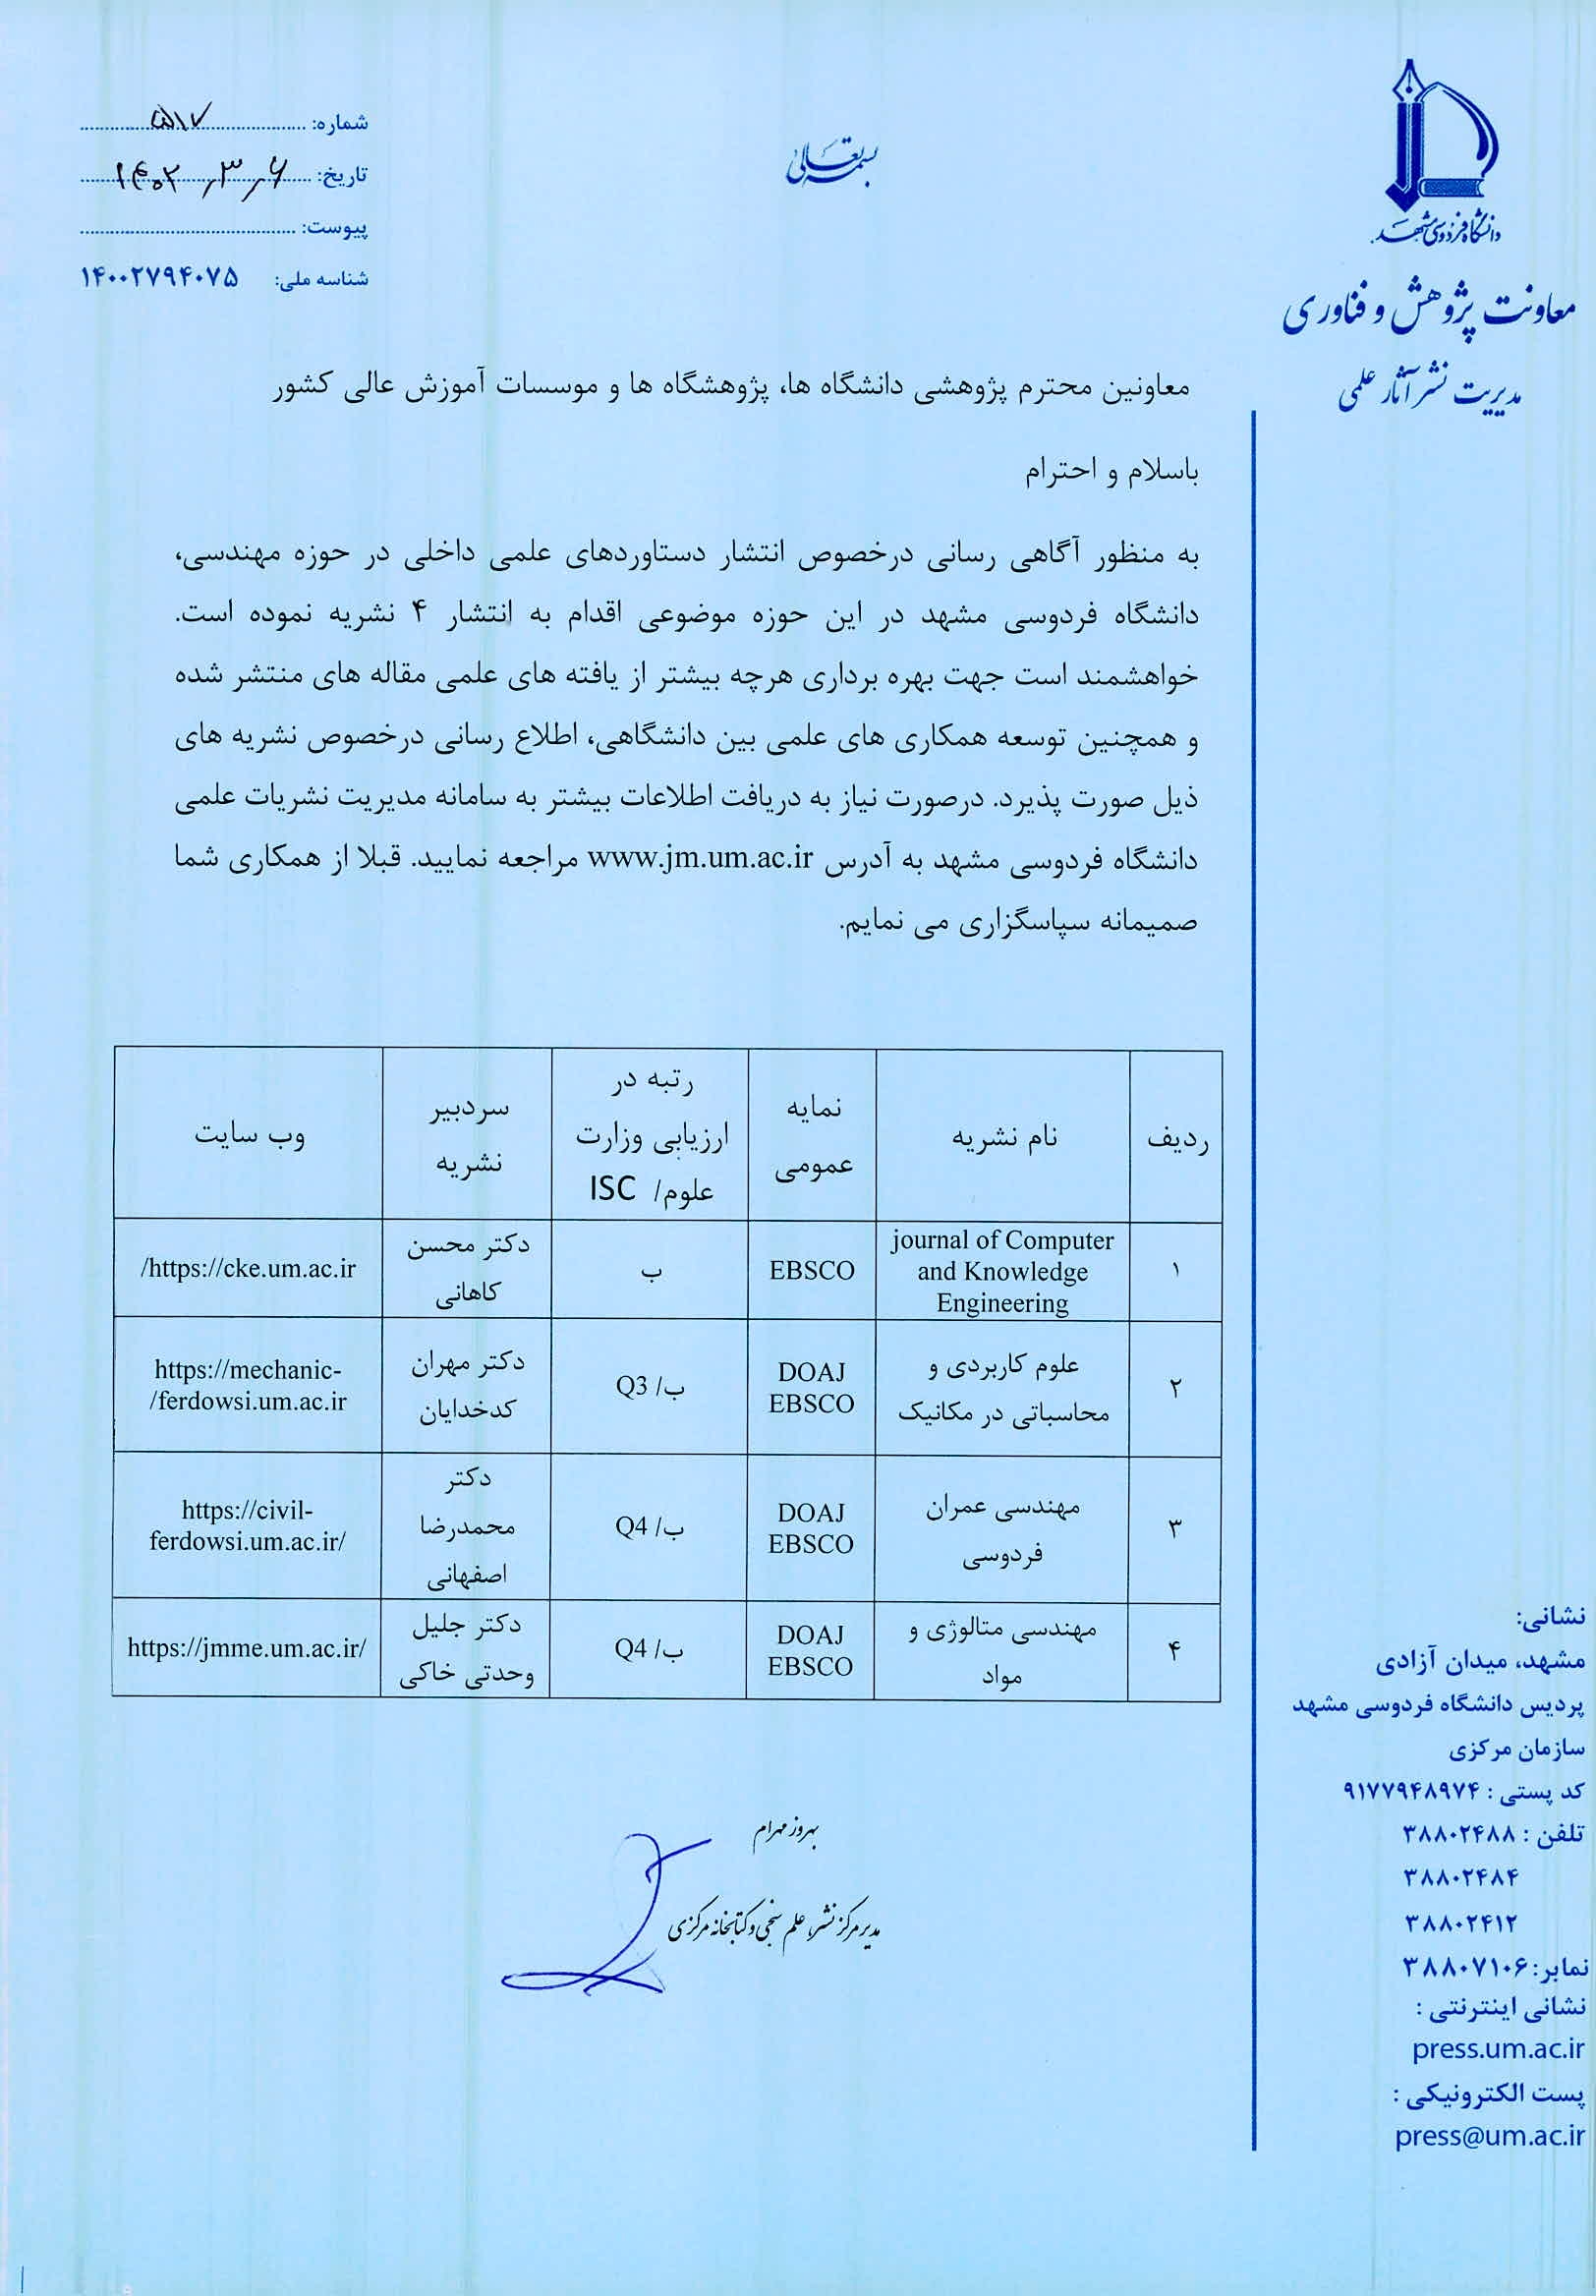 دانشگاه فردوسی مشهد
معاونت پژوهش و فناوری
مدیریت نشر آثار علمی
بسمه تعالی
شماره: ۵۱۷
تاریخ: ۱۴۰۲, ۳, ۶
پیوست:
شناسه ملی: ۱۴۰۰۲۷۹۴۰۷۵
معاونین محترم پژوهشی دانشگاه ها، پژوهشگاه ها و موسسات آموزش عالی کشور
باسلام و احترام
به منظور آگاهی رسانی درخصوص انتشار دستاوردهای علمی داخلی در حوزه مهندسی،
دانشگاه فردوسی مشهد در این حوزه موضوعی اقدام به انتشار ۴ نشریه نموده است.
خواهشمند است جهت بهره برداری هرچه بیشتر از یافته های علمی مقاله های منتشر شده
و همچنین توسعه همکاری های علمی بین دانشگاهی، اطلاع رسانی درخصوص نشریه های
ذیل صورت پذیرد. درصورت نیاز به دریافت اطلاعات بیشتر به سامانه مدیریت نشریات علمی
دانشگاه فردوسی مشهد به آدرس www.jm.um.ac.ir مراجعه نمایید. قبلا از همکاری شما
صمیمانه سپاسگزاری می نمایم.
ردیف
نام نشریه
نمایه
عمومی
رتبه در
ارزیابی وزارت
علوم/ ISC
سردبیر
نشریه
وب سایت
۱
journal of Computer
and Knowledge
Engineering
EBSCO
ب
دکتر محسن
کاهانی
/https://cke.um.ac.ir
۲
علوم کاربردی و
محاسباتی در مکانیک
DOAJ
EBSCO
ب/ Q3
دکتر مهران
کدخدایان
https://mechanic-
/ferdowsi.um.ac.ir
۳
مهندسی عمران
فردوسی
DOAJ
EBSCO
ب/ Q4
دکتر
محمدرضا
اصفهانی
https://civil-
ferdowsi.um.ac.ir/
۴
مهندسی متالوژی و
مواد
DOAJ
EBSCO
ب/ Q4
دکتر جلیل
وحدتی خاکی
https://jmme.um.ac.ir/
بهروز مهرام
مدیر مرکز نشر، علم سنجی و کتابخانه مرکزی
نشانی:
مشهد، میدان آزادی
پردیس دانشگاه فردوسی مشهد
سازمان مرکزی
کد پستی : ۹۱۷۷۹۴۸۹۷۴
تلفن : ۳۸۸۰۲۴۸۸
۳۸۸۰۲۴۸۴
۳۸۸۰۲۴۱۲
نمابر: ۳۸۸۰۷۱۰۶
نشانی اینترنتی :
press.um.ac.ir
پست الکترونیکی :
press@um.ac.ir